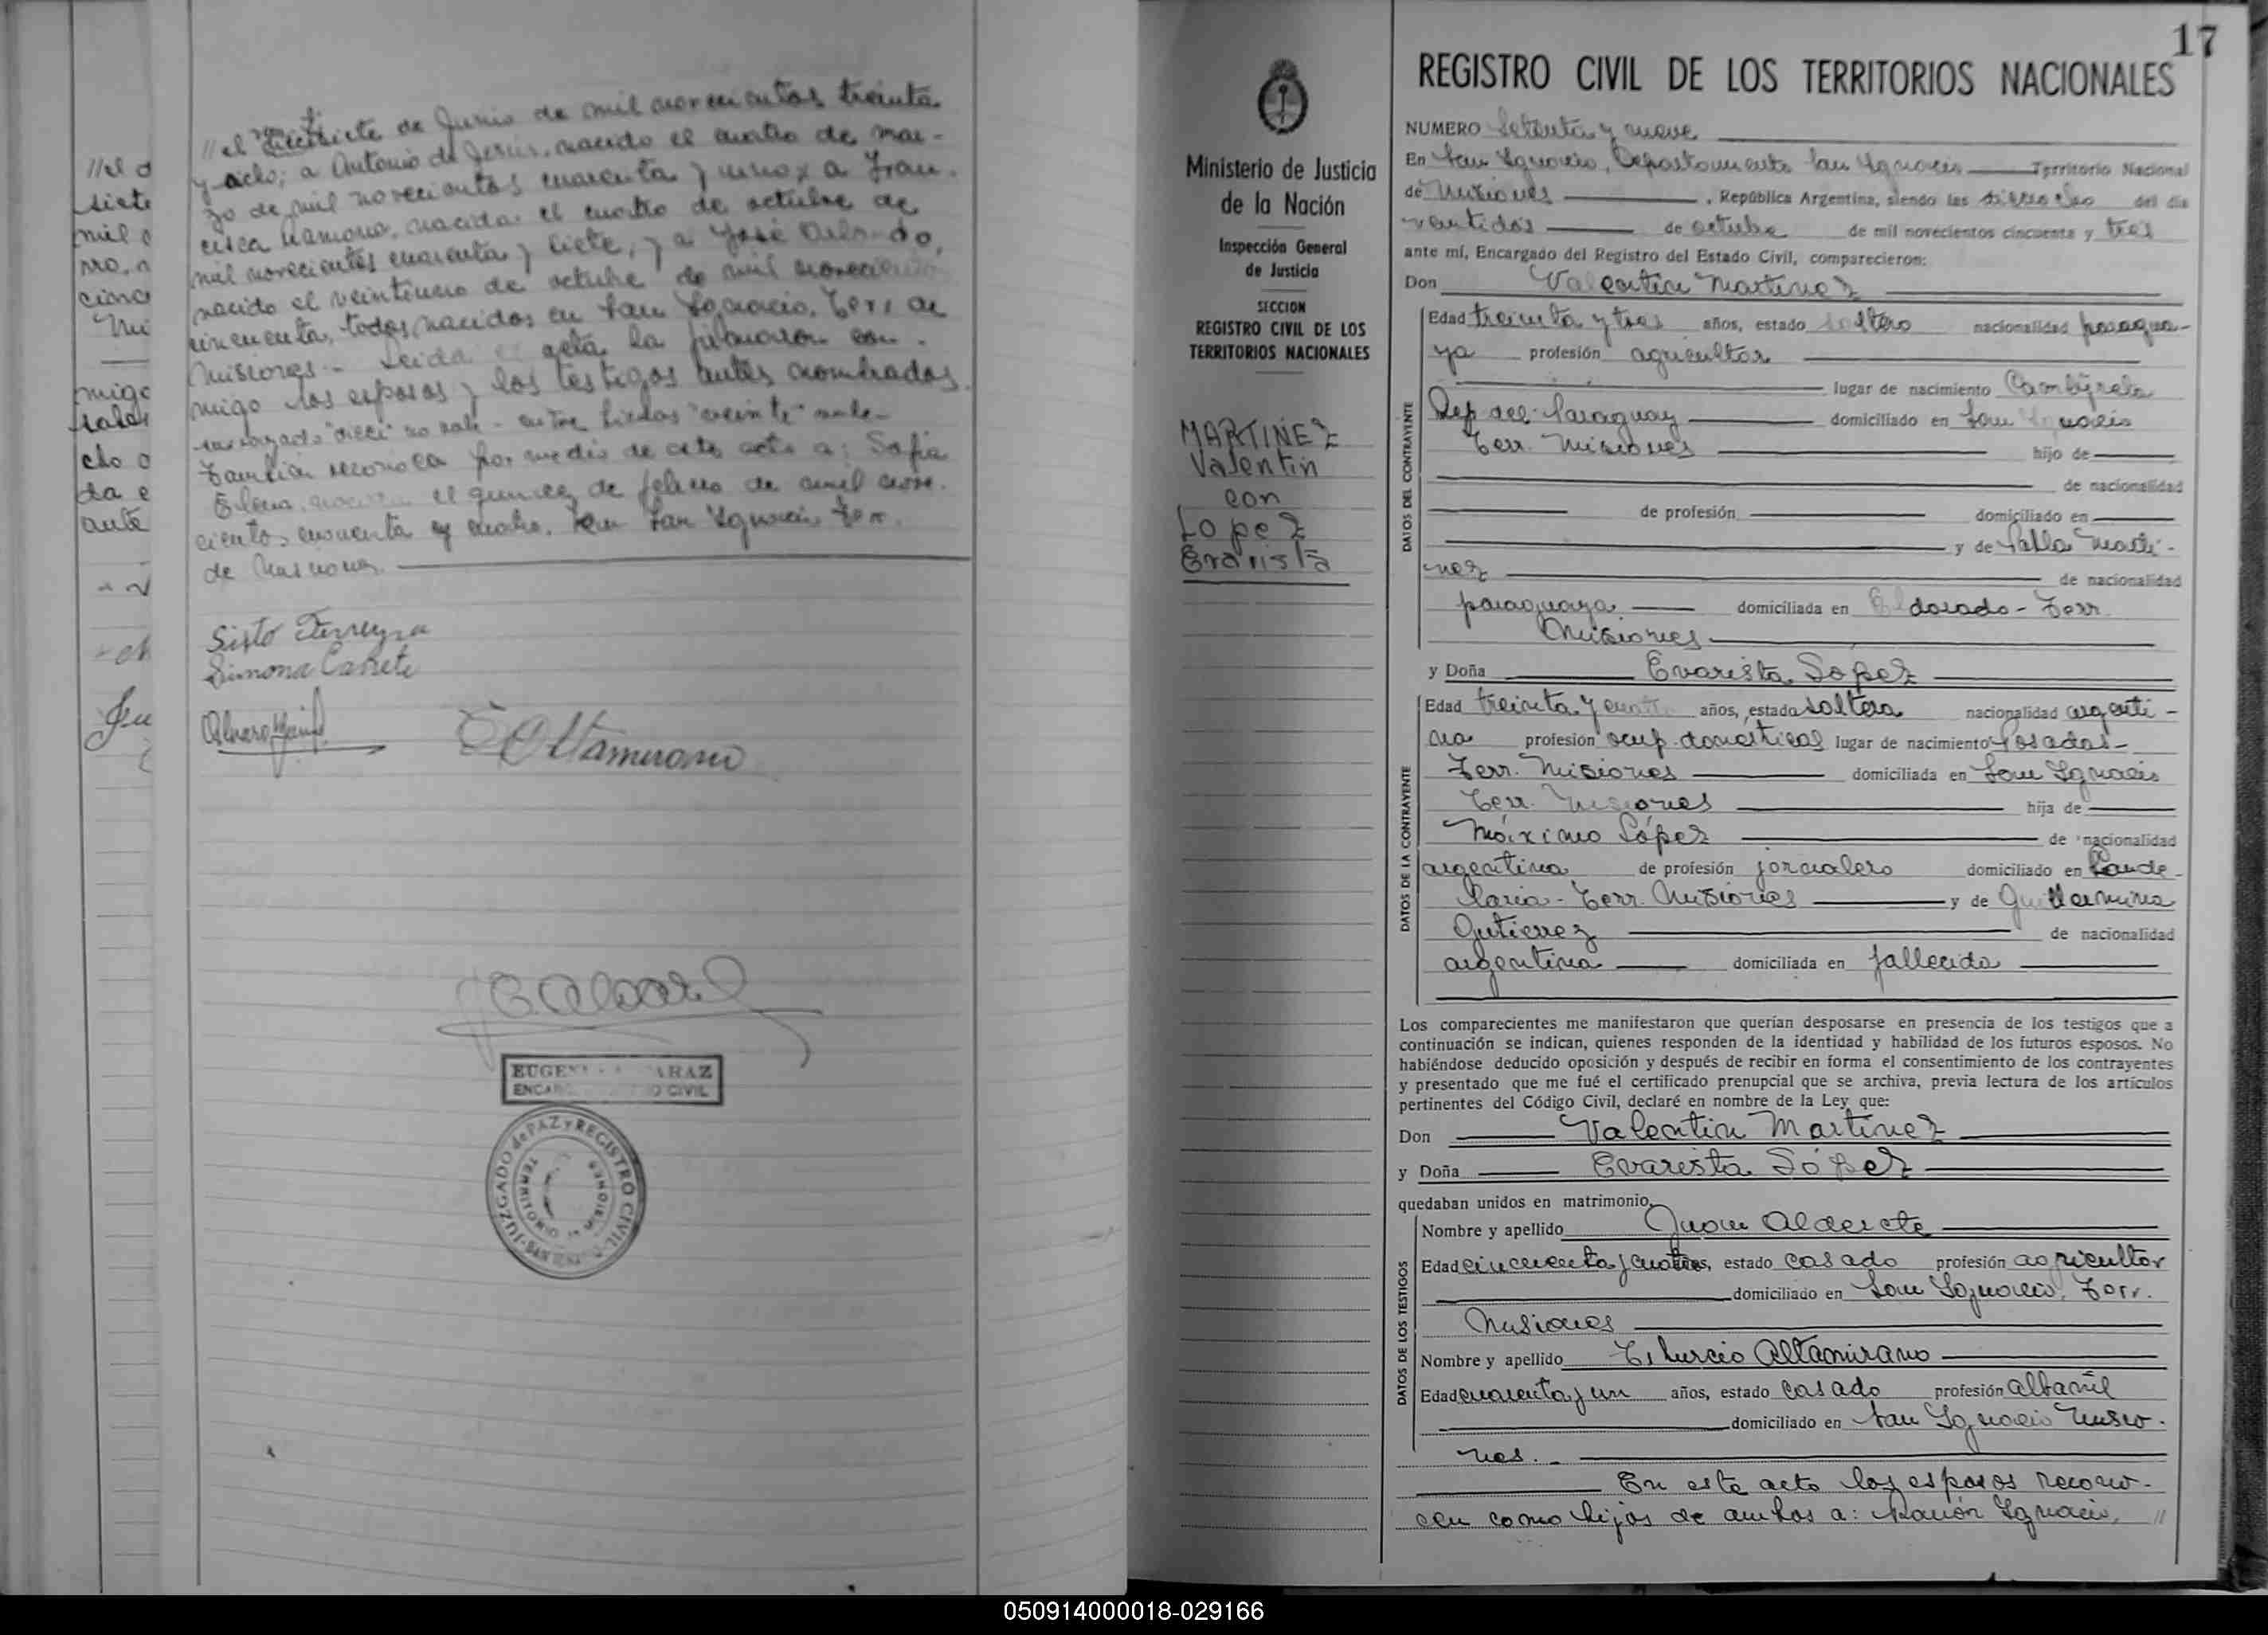 //el d
siete
mil
nro, n
cianc
Mi
migo
cho
da e
ante
veinti
//el diecisiete de Junio de mil novecientos treinta
y ocho; a Antonio de Jesús, nacido el cuatro de mar-
zo de mil novecientos cuarenta y uno x a Fran-
cisca Ramona, nacida el cuatro de octubre de
mil novecientos cuarenta y siete, y a José Orlando,
nacido el veintiuno de octubre de mil novecientos
cincuenta, todos nacidos en San Ignacio, Terr. de
Misiones.- Leída el acta la firmaron con-
migo los esposos y los testigos antes nombrados.
"dieci" no vale - entre lineas "veinti" vale-
También reconocen por medio de este acto a: Sofia
Elena, nacida el quince de febrero de mil nove-
cientos cincuenta y cuatro, en San Ignacio Terr.
de Misiones
Sisto Ferreyra
Simona Cañete
Altamirano
EUGEN ARAZ
ENCAR O CIVIL
JUZGADO de PAZ y REGISTRO CIVIL
TERRITORIO MISIONES
17
REGISTRO CIVIL DE LOS TERRITORIOS NACIONALES
Ministerio de Justicia
de la Nación
Inspección General
de Justicia
SECCION
REGISTRO CIVIL DE LOS
TERRITORIOS NACIONALES
MARTINEZ
Valentin
con
Lopez
Evarista
NUMERO Setenta y nueve
En San Ignacio, Departamento San Ignacio Territorio Nacional
de Misiones , República Argentina, siendo las dieciocho del día
veintidos de octubre de mil novecientos cincuenta y tres
ante mí, Encargado del Registro del Estado Civil, comparecieron:
Don Valentin Martinez
DATOS DEL CONTRAYENTE
Edad treinta y tres años, estado soltero nacionalidad paragua-
ya profesión agricultor
lugar de nacimiento Cambyreta
Rep. del Paraguay domiciliado en San Ignacio
Terr. Misiones hijo de
de nacionalidad
de profesión domiciliado en
y de Pabla Marti-
nez de nacionalidad
paraguaya domiciliada en Eldorado - Terr.
Misiones
y Doña Evarista López
DATOS DE LA CONTRAYENTE
Edad treinta y cuatro años, estado soltera nacionalidad argenti-
na profesión ocup. domesticas lugar de nacimiento Posadas-
Terr. Misiones domiciliada en San Ignacio
Terr. Misiones hija de
Máximo López de nacionalidad
argentina de profesión jornalero domiciliado en Cande-
laria - Terr. Misiones y de Guillermina
Gutierrez de nacionalidad
argentina domiciliada en fallecida
Los comparecientes me manifestaron que querían desposarse en presencia de los testigos que a
continuación se indican, quienes responden de la identidad y habilidad de los futuros esposos. No
habiéndose deducido oposición y después de recibir en forma el consentimiento de los contrayentes
y presentado que me fué el certificado prenupcial que se archiva, previa lectura de los artículos
pertinentes del Código Civil, declaré en nombre de la Ley que:
Don Valentin Martinez
y Doña Evarista López
quedaban unidos en matrimonio.
DATOS DE LOS TESTIGOS
Nombre y apellido Juan Alderete
Edad cincuenta y cuatro años, estado casado profesión agricultor
domiciliado en San Ignacio, Terr.
Misiones
Nombre y apellido Altamirano
Edad cuarenta y un años, estado casado profesión albañil
domiciliado en San Ignacio Misio-
nes.-
En este acto los esposos recono-
cen como hijos de ambos a: Ramón Ignacio, //
050914000018-029166